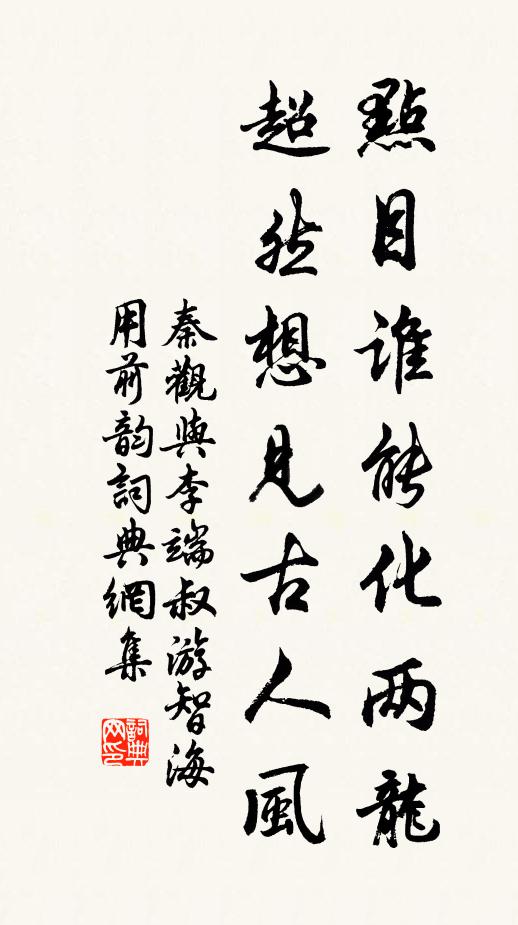 點目誰能化两龍
超然想見古人風
秦觀與李端叔游智海
用前韵詞典網集
詞典网印